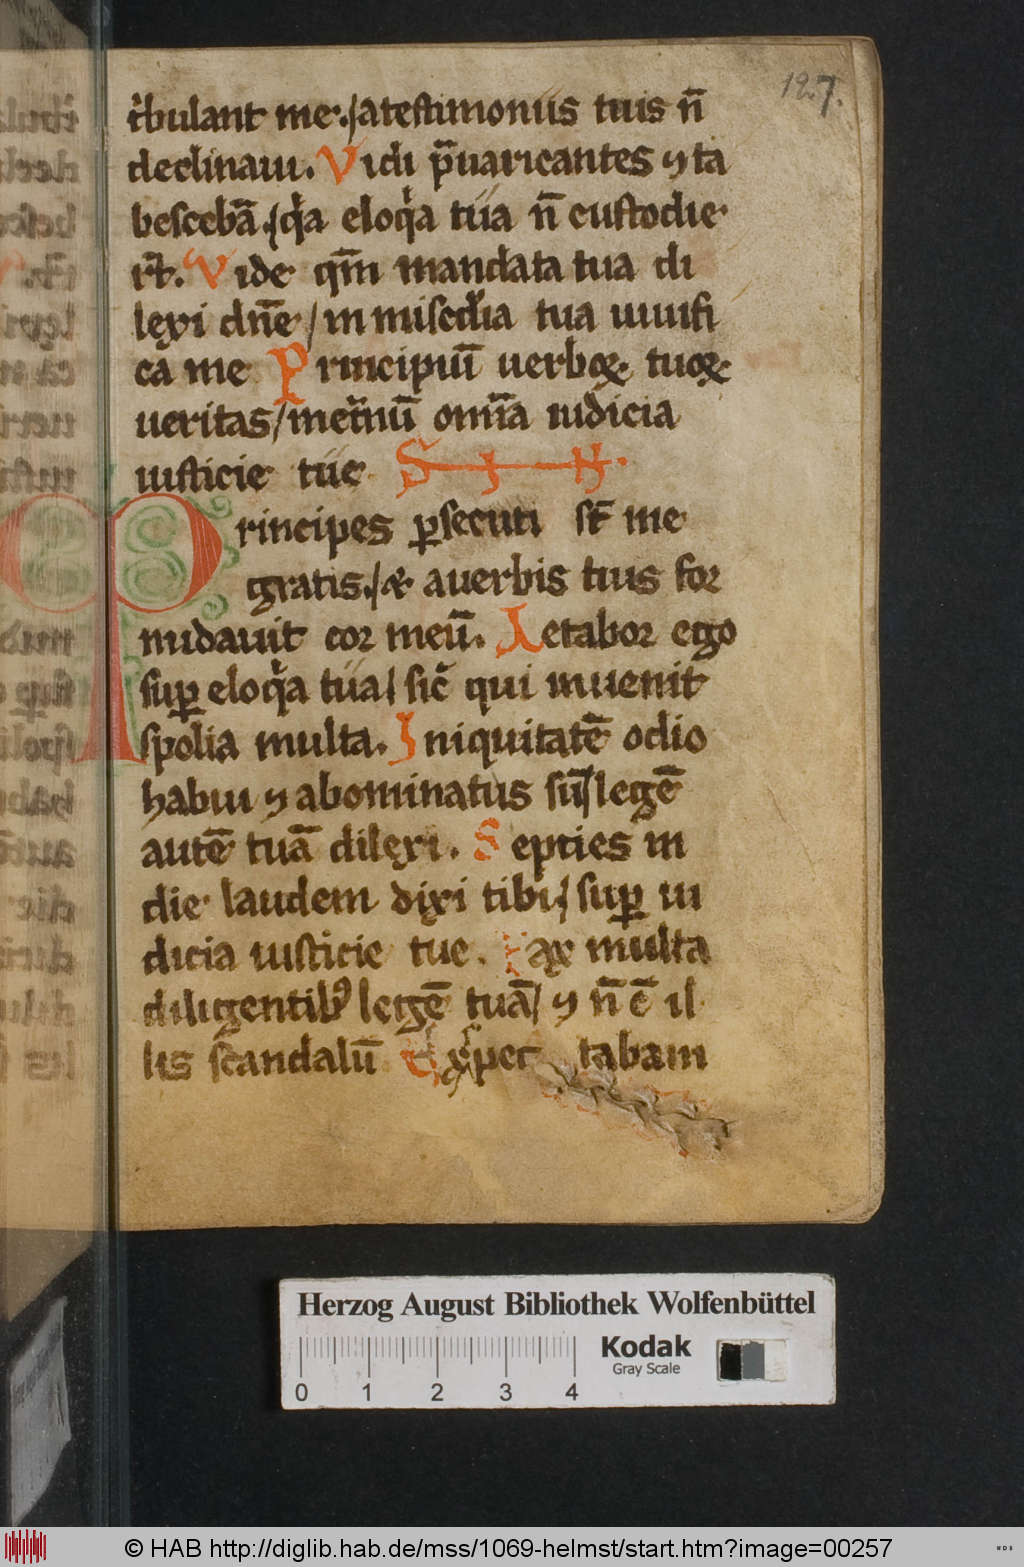 127.
t᷒bulant me./atestimoniis tuis n̄
declinaui. Vidi p̄uaricantes ⁊ ta
bescebā./q̓a eloq̓a tua n̄ custodie
rt̄. Vide qm̄ mandata tua di
lexi dn̄e/in misc̓dia tua uiuifi
ca me Principiū uerboꝝ tuoꝝ
ueritas/inet̓nū omīa iudicia
iusticie tue S I N
Principes ꝑsecuti st̄ me
gratis./& auerbis tuis for
midauit cor meū. Letabor ego
suꝑ eloq̓a tua/sic̄ qui inuenit
spolia multa. Iniquitatē odio
habui ⁊ abominatus sū/legē
autē tuā dilexi. Septies in
die laudem dixi tibi/suꝑ iu
dicia iusticie tue. Pax multa
diligentibꝰ legē tuā/⁊ n̄ ē il
lis scandalū Expectabam
Herzog August Bibliothek Wolfenbüttel
Kodak
Gray Scale
0 1 2 3 4
© HAB http://diglib.hab.de/mss/1069-helmst/start.htm?image=00257